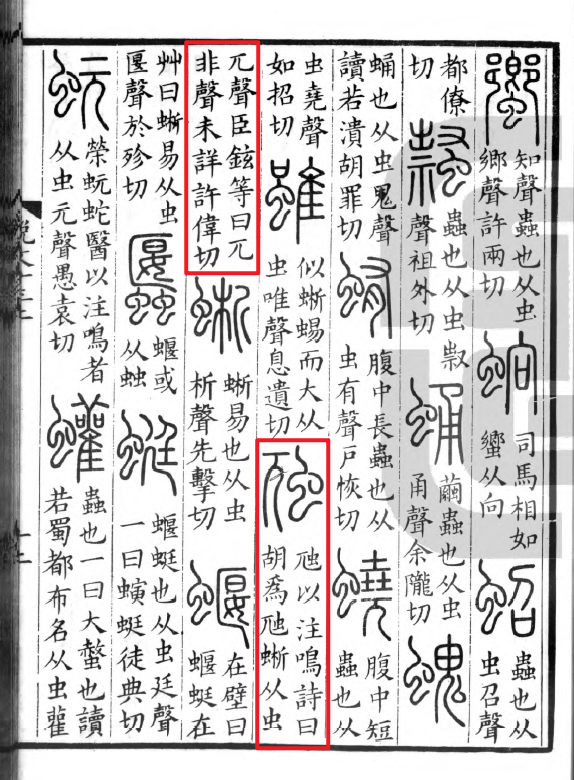 蠁
知聲蟲也从虫
鄉聲許兩切
蚼
司馬相如
蠁从向
蛁
蟲也从
虫召聲
都僚
切
蟲也从虫㕟
聲祖外切
蛹
繭蟲也从虫
甬聲余隴切
螝
蛹也从虫鬼聲
讀若潰胡罪切
蛕
腹中長蟲也从
虫有聲戶恢切
蟯
腹中短
蟲也从
虫堯聲
如招切
雖
似蜥蜴而大从
虫唯聲息遺切
虺
虺以注鳴詩曰
胡爲虺蜥从虫
兀聲臣鉉等曰兀
非聲未詳許偉切
蜥
蜥易也从虫
析聲先擊切
蝘
在壁曰
蝘蜓在
艸曰蜥易从虫
匽聲於殄切
蝘或
从䖵
蜓
蝘蜓也从虫廷聲
一曰螾蜓徒典切
蚖
榮蚖蛇醫以注鳴者
从虫元聲愚袁切
蠸
蟲也一曰大螫也讀
若蜀都布名从虫雚